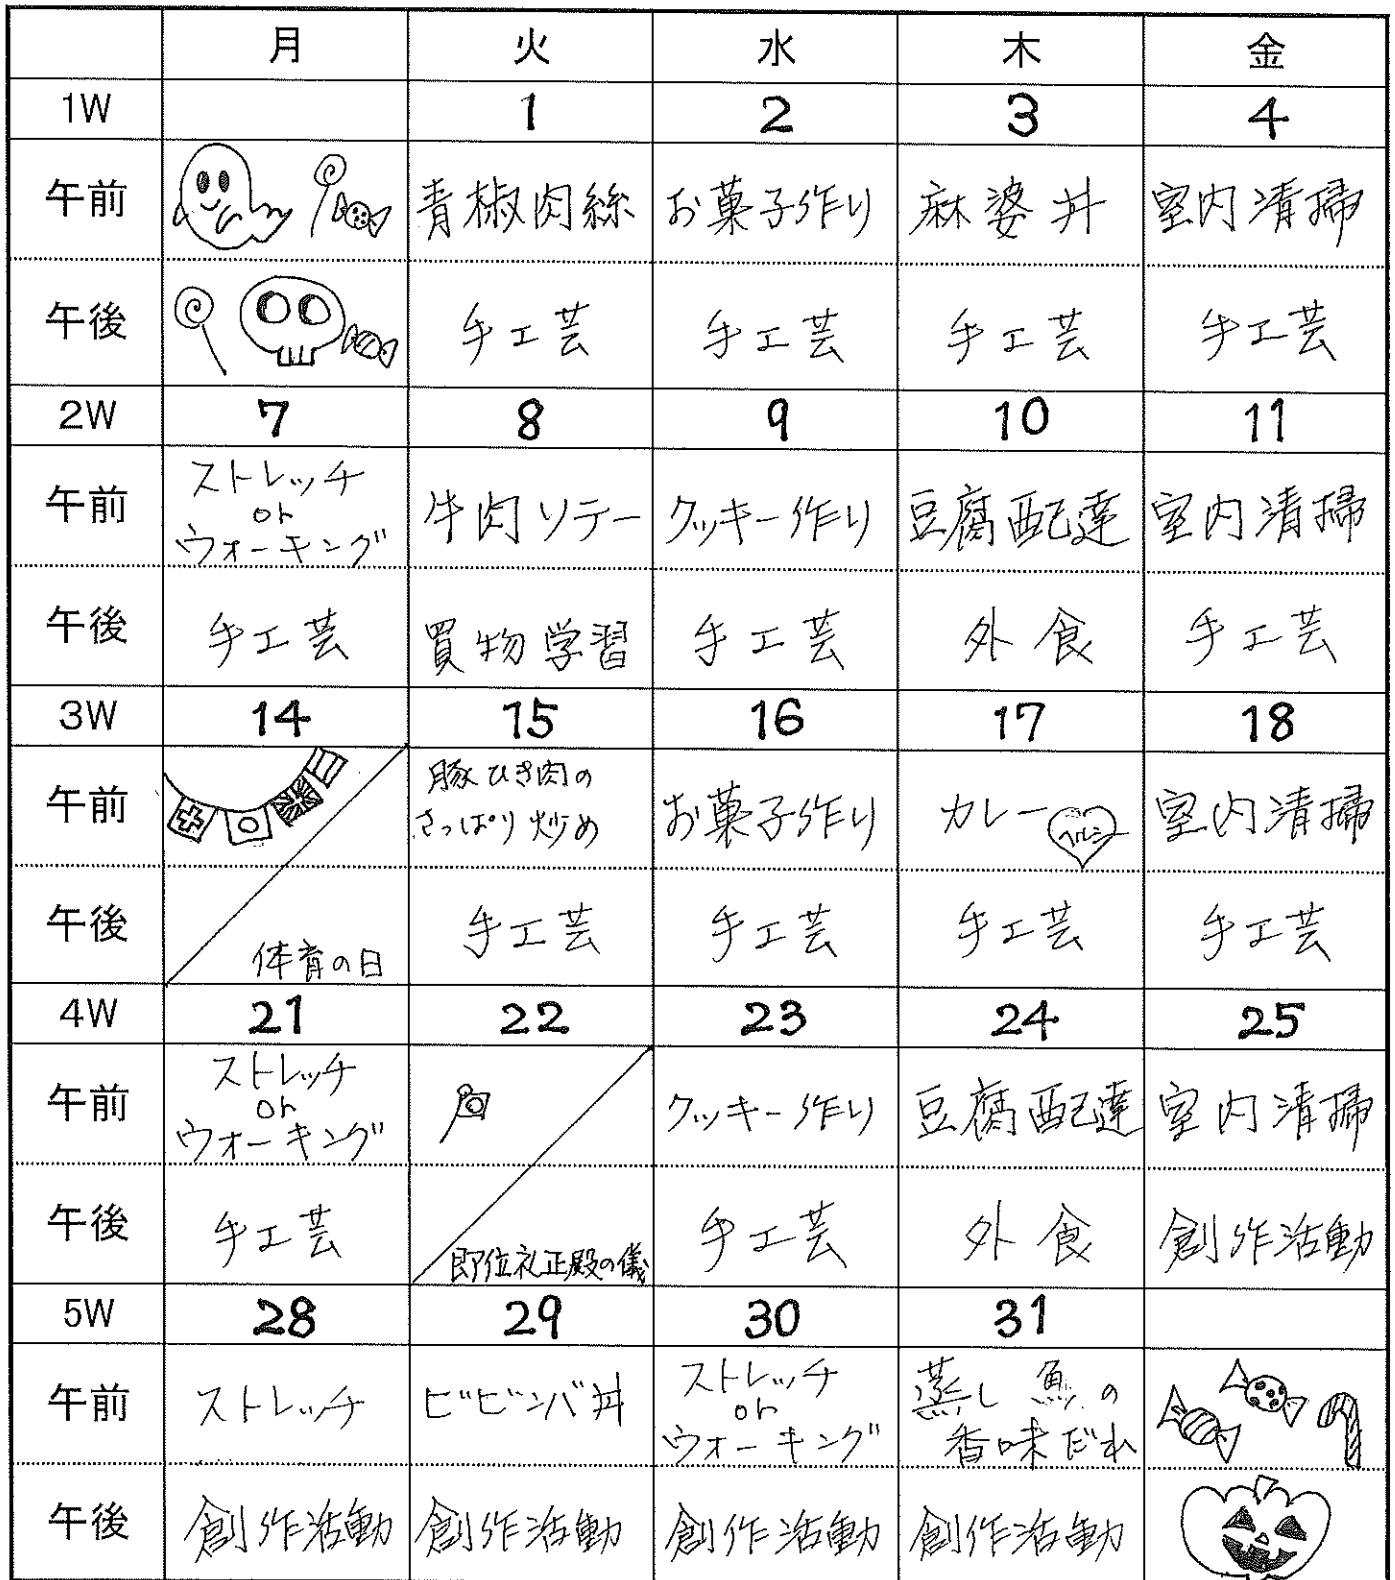 月 火 水 木 金
1W 1 2 3 4
午前 青椒肉絲 お菓子作り 麻婆丼 室内清掃
午後 手工芸 手工芸 手工芸 手工芸
2W 7 8 9 10 11
午前 ストレッチ or ウォーキング 牛肉ソテー クッキー作り 豆腐配達 室内清掃
午後 手工芸 買物学習 手工芸 外食 手工芸
3W 14 15 16 17 18
午前 豚ひき肉の さっぱり炒め お菓子作り カレー ヘルシー 室内清掃
午後 体育の日 手工芸 手工芸 手工芸 手工芸
4W 21 22 23 24 25
午前 ストレッチ or ウォーキング クッキー作り 豆腐配達 室内清掃
午後 手工芸 即位礼正殿の儀 手工芸 外食 創作活動
5W 28 29 30 31
午前 ストレッチ ビビンバ丼 ストレッチ or ウォーキング 蒸し魚の 香味だれ
午後 創作活動 創作活動 創作活動 創作活動